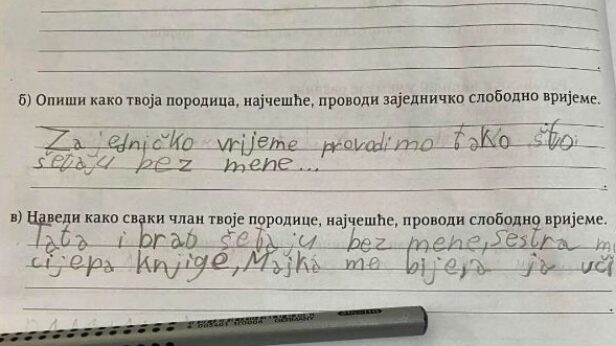 б) Опиши како твоја породица, најчешће, проводи заједничко слободно вријеме.
Zajedničko vrijeme provodimo tako što
šetaju bez mene...
в) Наведи како сваки члан твоје породице, најчешће, проводи слободно вријеме.
Tata i brat šetaju bez mene, sestra
cijepa knjige, Majka me bije, a ja
GERMANY